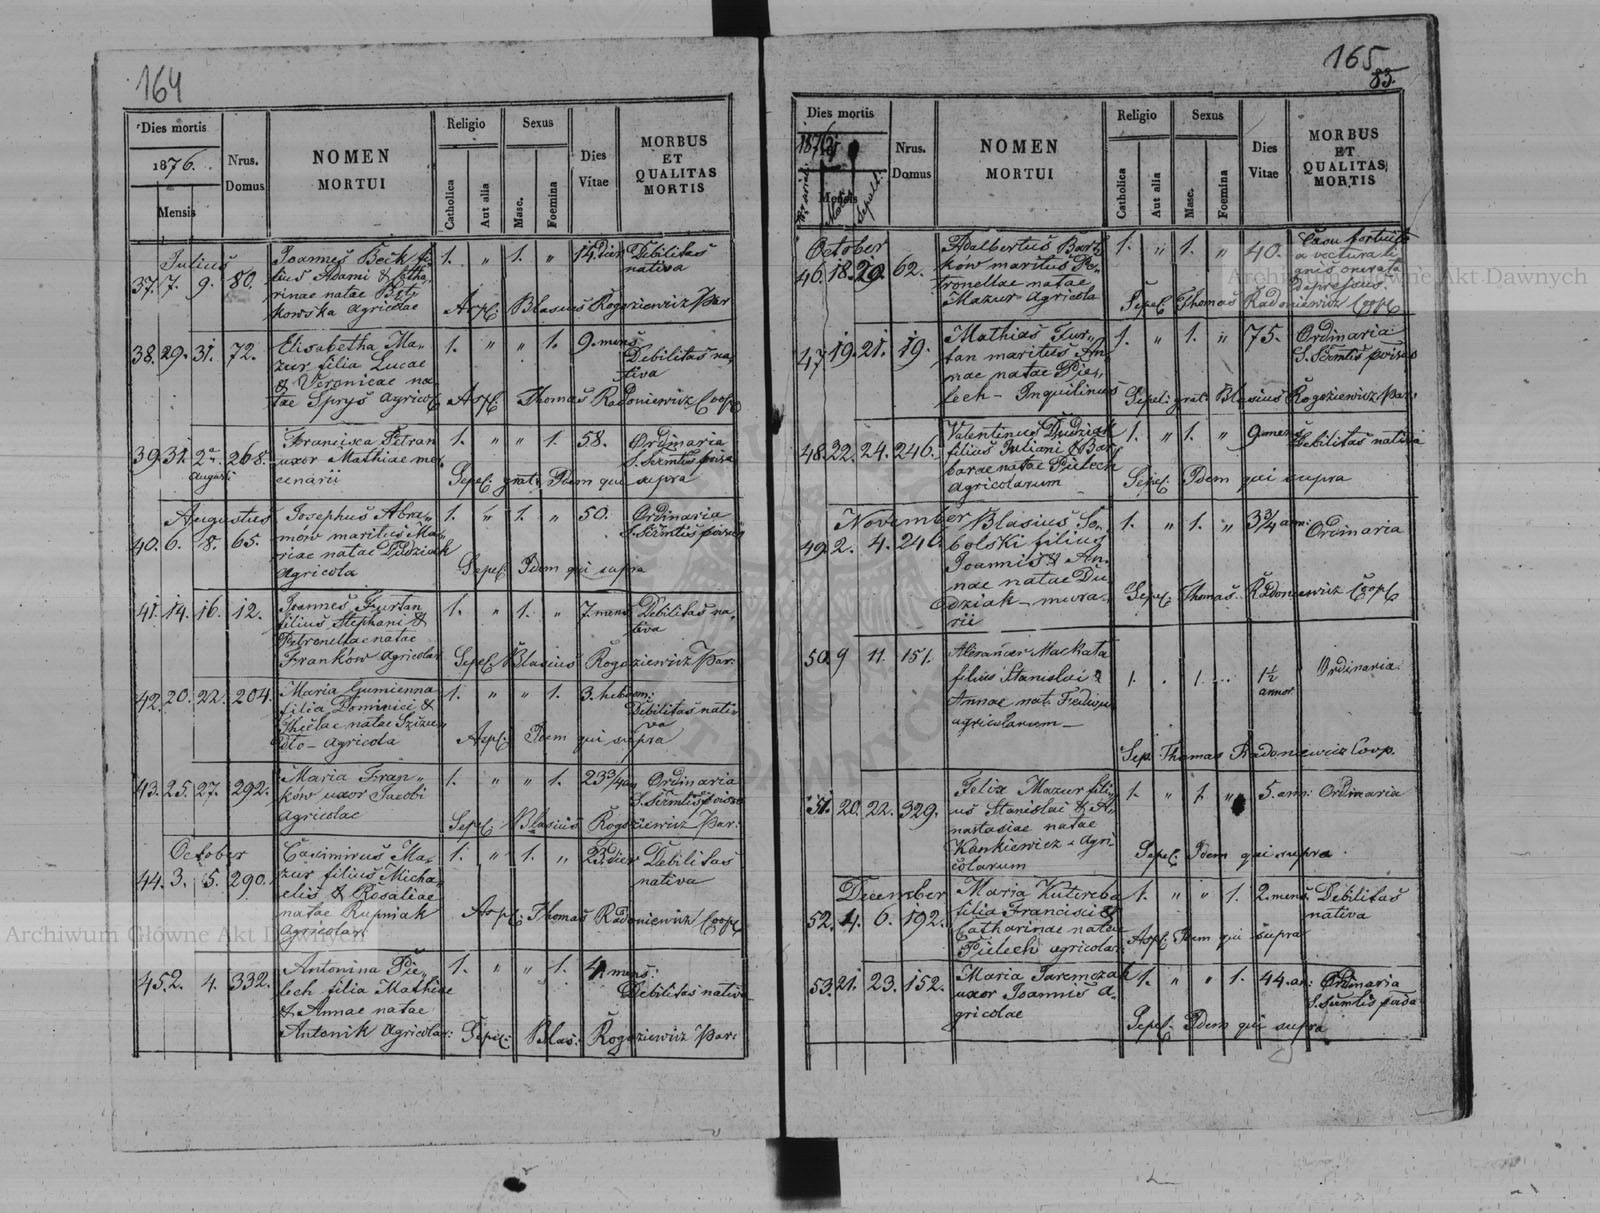 164
Dies mortis
1876.
Mensis
Nrus. Domus
NOMEN MORTUI
Religio
Catholica
Aut alia
Sexus
Masc.
Foemina
Dies Vitae
MORBUS ET QUALITAS MORTIS
Julius
37. 7. 9. 80. Joannes Beck fi- 1. " 1. " 14. dier Debilitas
lius Adami & Catha nativa
rinae natae Bit-
kowska Agricolae Blasius Rogoziewicz Par
38. 29. 31. 72. Elisabetha Ma- 1. " " 1. 9. mens
zur filia Lucae Debilitas na-
& Veronicae na- tiva
tae Sprys agricol Thomas Radoniewicz Coop
39. 31. 2 268. Francisca Petran 1. " " 1. 58. Ordinaria
Augusti uxor Mathiae mer S. Szmtis provisa
cenarii Sepel: grat: Idem qui supra
Augustus
40. 6. 8. 65. Josephus Abra- 1. " 1. " 50. Ordinaria
mów maritus Ma- S. Szmtis provisus
riae natae Dudziak
Agricola Sepel: Idem qui supra
41. 14. 16. 12. Joannes Furtan 1. " 1. " 7. mens Debilitas na-
filius Stephani & tiva
Petronellae natae
Franków Agricolar Sepel: Blasius Rogoziewicz Par:
42. 20. 22. 204. Maria Gumienna 1. " " 1. 3. hebdom:
filia Dominici & Debilitas nati-
Theclae natae va
dło - Agricola Idem qui supra
43. 25. 27. 292. Maria Fran- 1. " " 1. 23 3/4 an Ordinaria
ków uxor Jacobi S. Szmtis provisa
Agricolae Sepel: Blasius Rogoziewicz Par:
October
44. 3. 5. 290. Casimirus Ma- 1. " 1. " 23. dier Debilitas
zur filius Micha- nativa
elis & Rosaliae
natae Rupniak Thomas Radoniewicz Coop
Agricolar.
45. 2. 4. 332. Antonina Pie- 1. " " 1. 4. mens:
lech filia Mathiae Debilitas nativa
& Annae natae
Antonik Agricolar: Sepel: Blas: Rogoziewicz Par:
165
83.
Dies mortis
1876
Mensis
Mortis
Sepult:
Nrus. Domus
NOMEN MORTUI
Religio
Catholica
Aut alia
Sexus
Masc.
Foemina
Dies Vitae
MORBUS ET QUALITAS MORTIS
October
46. 18. 20. 62. Adalbertus Bart- 1. " 1. " 40. Casu fortuito
ków maritus Pe- a vectura li
tronellae natae gnis onerata
Mazur Agricola depressus.
Sepel: Thomas Radoniewicz Coop
47. 19. 21. 19. Mathias Fur- 1. " 1. " 75. Ordinaria
tan maritus An- S. Szmtis provisus
nae natae Pie-
lech - Inquilinus Sepel: grat: Blasius Rogoziewicz Par:
48. 22. 24. 246. Valentinus Dudziak 1. " 1. " 9. mens Debilitas nativa
filius Juliani & Bar
barae natae Pielech
Agricolarum Sepel: Idem qui supra
November
49. 2. 4. 240. Blasius So- 1. " 1. " 3 3/4 ann: Ordinaria
bolski filius
Joannis & An-
nae natae Du-
dziak - mura- Sepel: Thomas Radoniewicz Coop
rii
50. 9 11. 151. Alexander Machata 1. . 1. .. 1 1/2 annor Ordinaria.
filius Stanislai &
Annae nat.
agricolarum -
Sep. Thomas Radoniewicz Coop.
51. 20. 22. 329. Felix Mazur fili- 1. " 1. " 5. ann: Ordinaria
us Stanislai & A-
nastasiae natae
Kankiewicz - Agri-
colarum Sepel: Idem qui supra
December
52. 4. 6. 192. Maria Kutereba 1. " " 1. 2. mens: Debilitas
filia Francisci & nativa
Catharinae natae
Pielech agricolar: Idem qui supra
53. 21. 23. 152. Maria Jaremczak 1. " " 1. 44. an: Ordinaria
uxor Joannis A-
gricolae Sepel: Idem qui supra
Archiwum Główne Akt Dawnych
Archiwum Główne Akt Dawnych